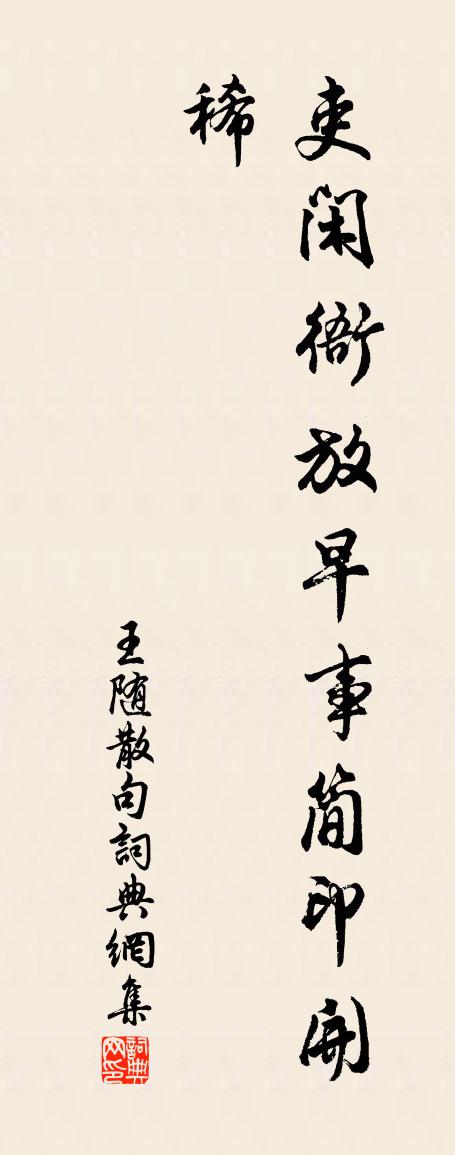 吏閑衙放早事簡印開
稀
王随散句詞典網集
詞典网印